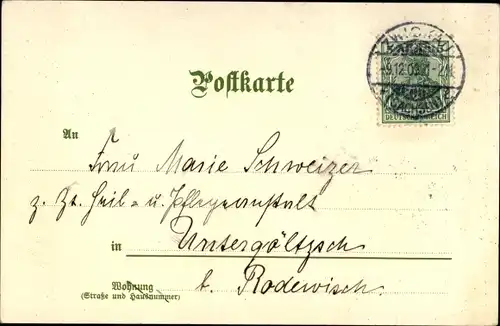 ZWICKAU
9.12.03
(SACHSEN)
DEUTSCHES REICH
Postkarte
An
Frau Marie Schweizer
z. Zt. Heil- u. Pflegeanstalt
in Untergöltzsch
b. Rodewisch.
Wohnung
(Straße und Hausnummer)